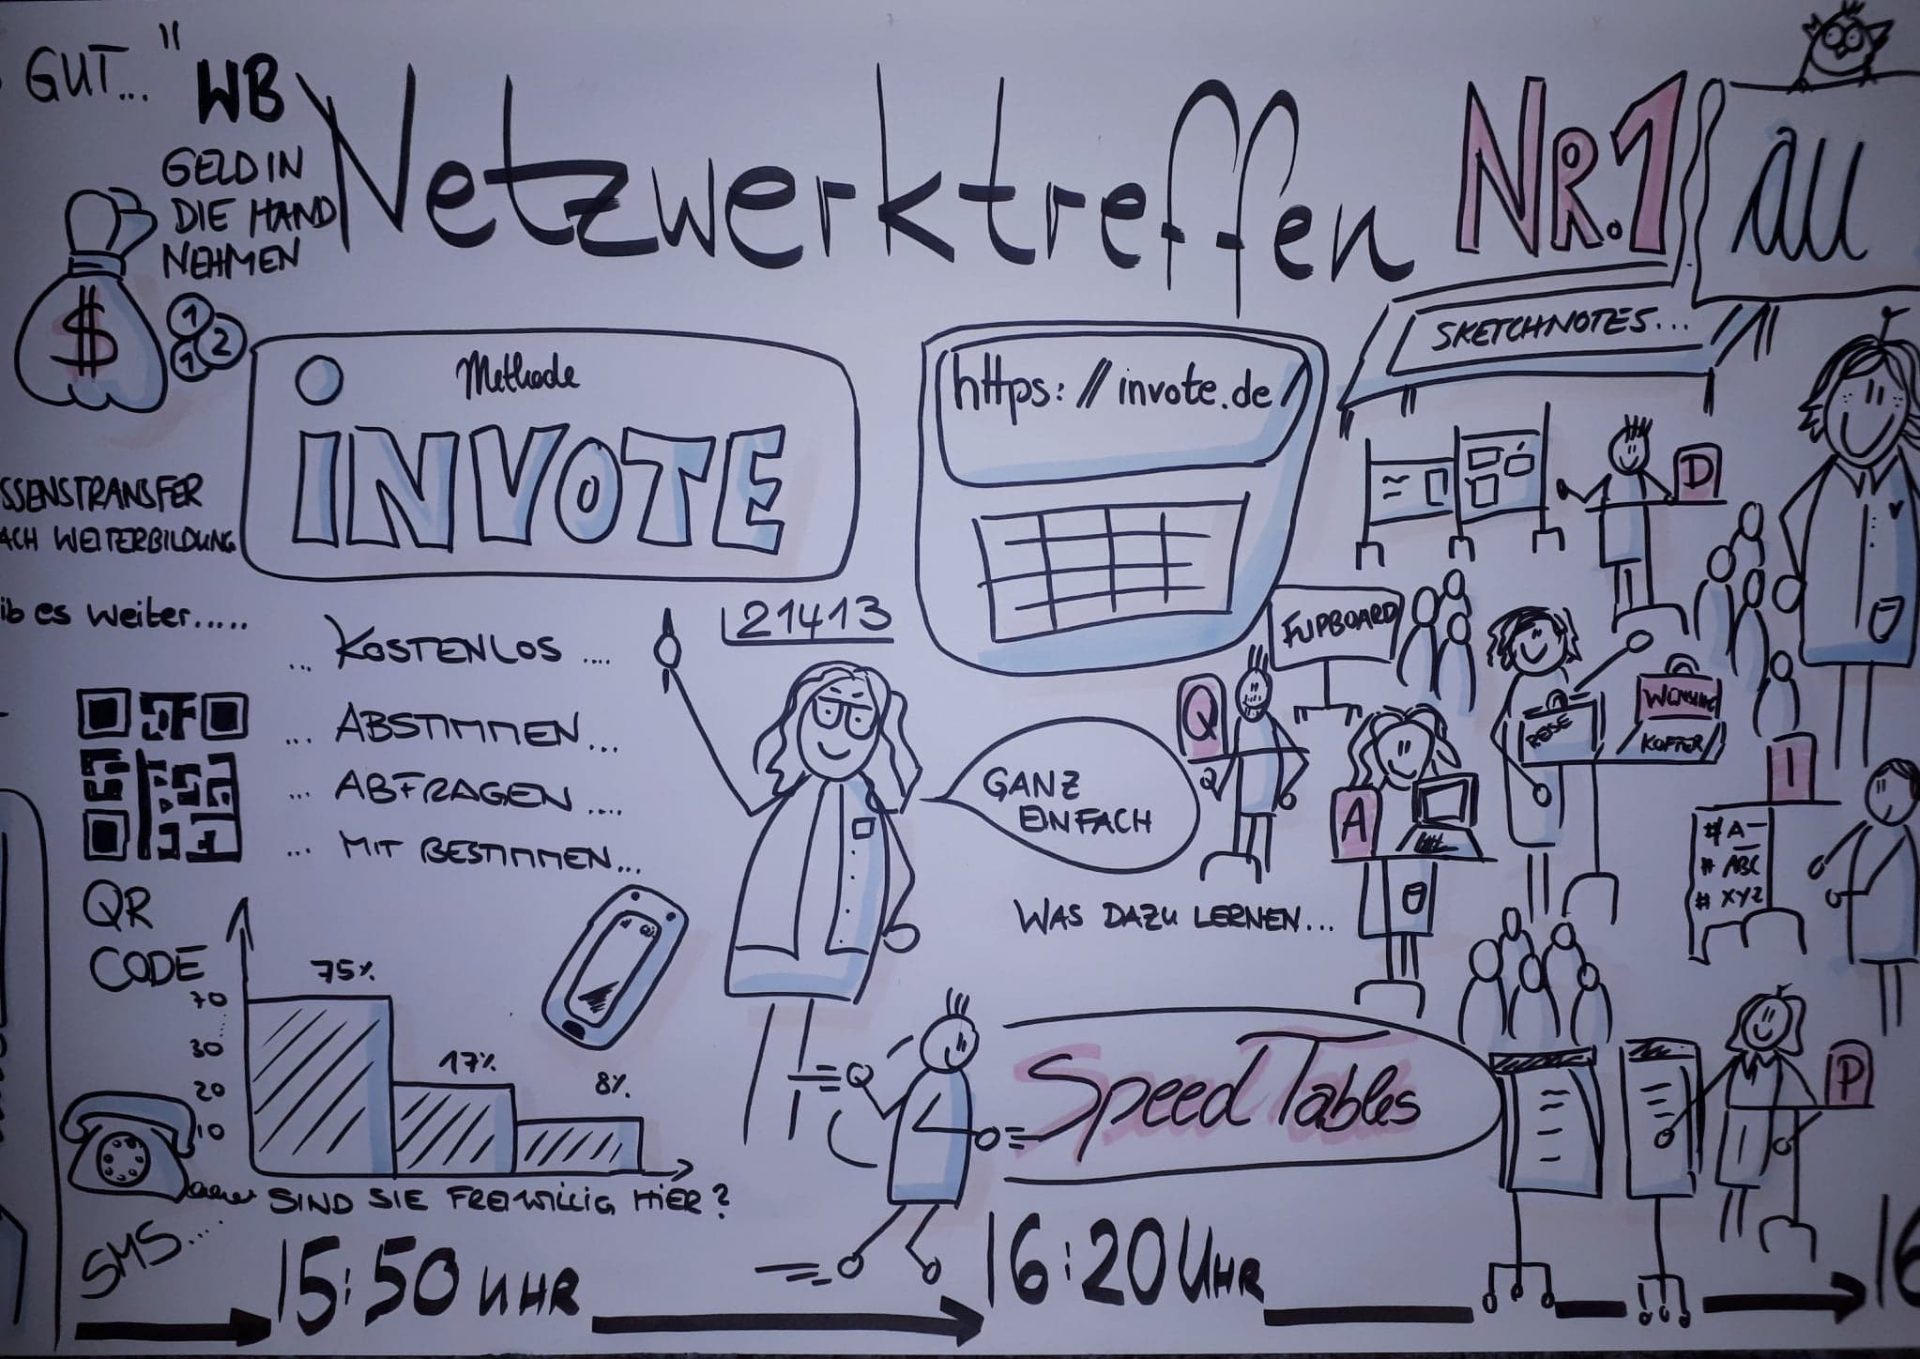 GUT..."
WB
Netzwerktreffen
NR.1
au
GELD IN
DIE HAND
NEHMEN
$
1
2
1
SSENSTRANSFER
ACH WEITERBILDUNG
ib es weiter.....
Methode
INVOTE
https://invote.de/
SKETCHNOTES...
21413
... KOSTENLOS ....
... ABSTIMMEN...
... ABFRAGEN ....
... MIT BESTIMMEN...
QR
CODE
75%
17%
8%
70
30
20
10
SIND SIE FREIWILLIG HIER?
SMS....
GANZ
EINFACH
WAS DAZU LERNEN...
Speed Tables
FLIPBOARD
D
Q
A
REISE
KOFFER
I
# A
# ABC
# XYZ
P
15:50 UHR
16:20 UHR
16